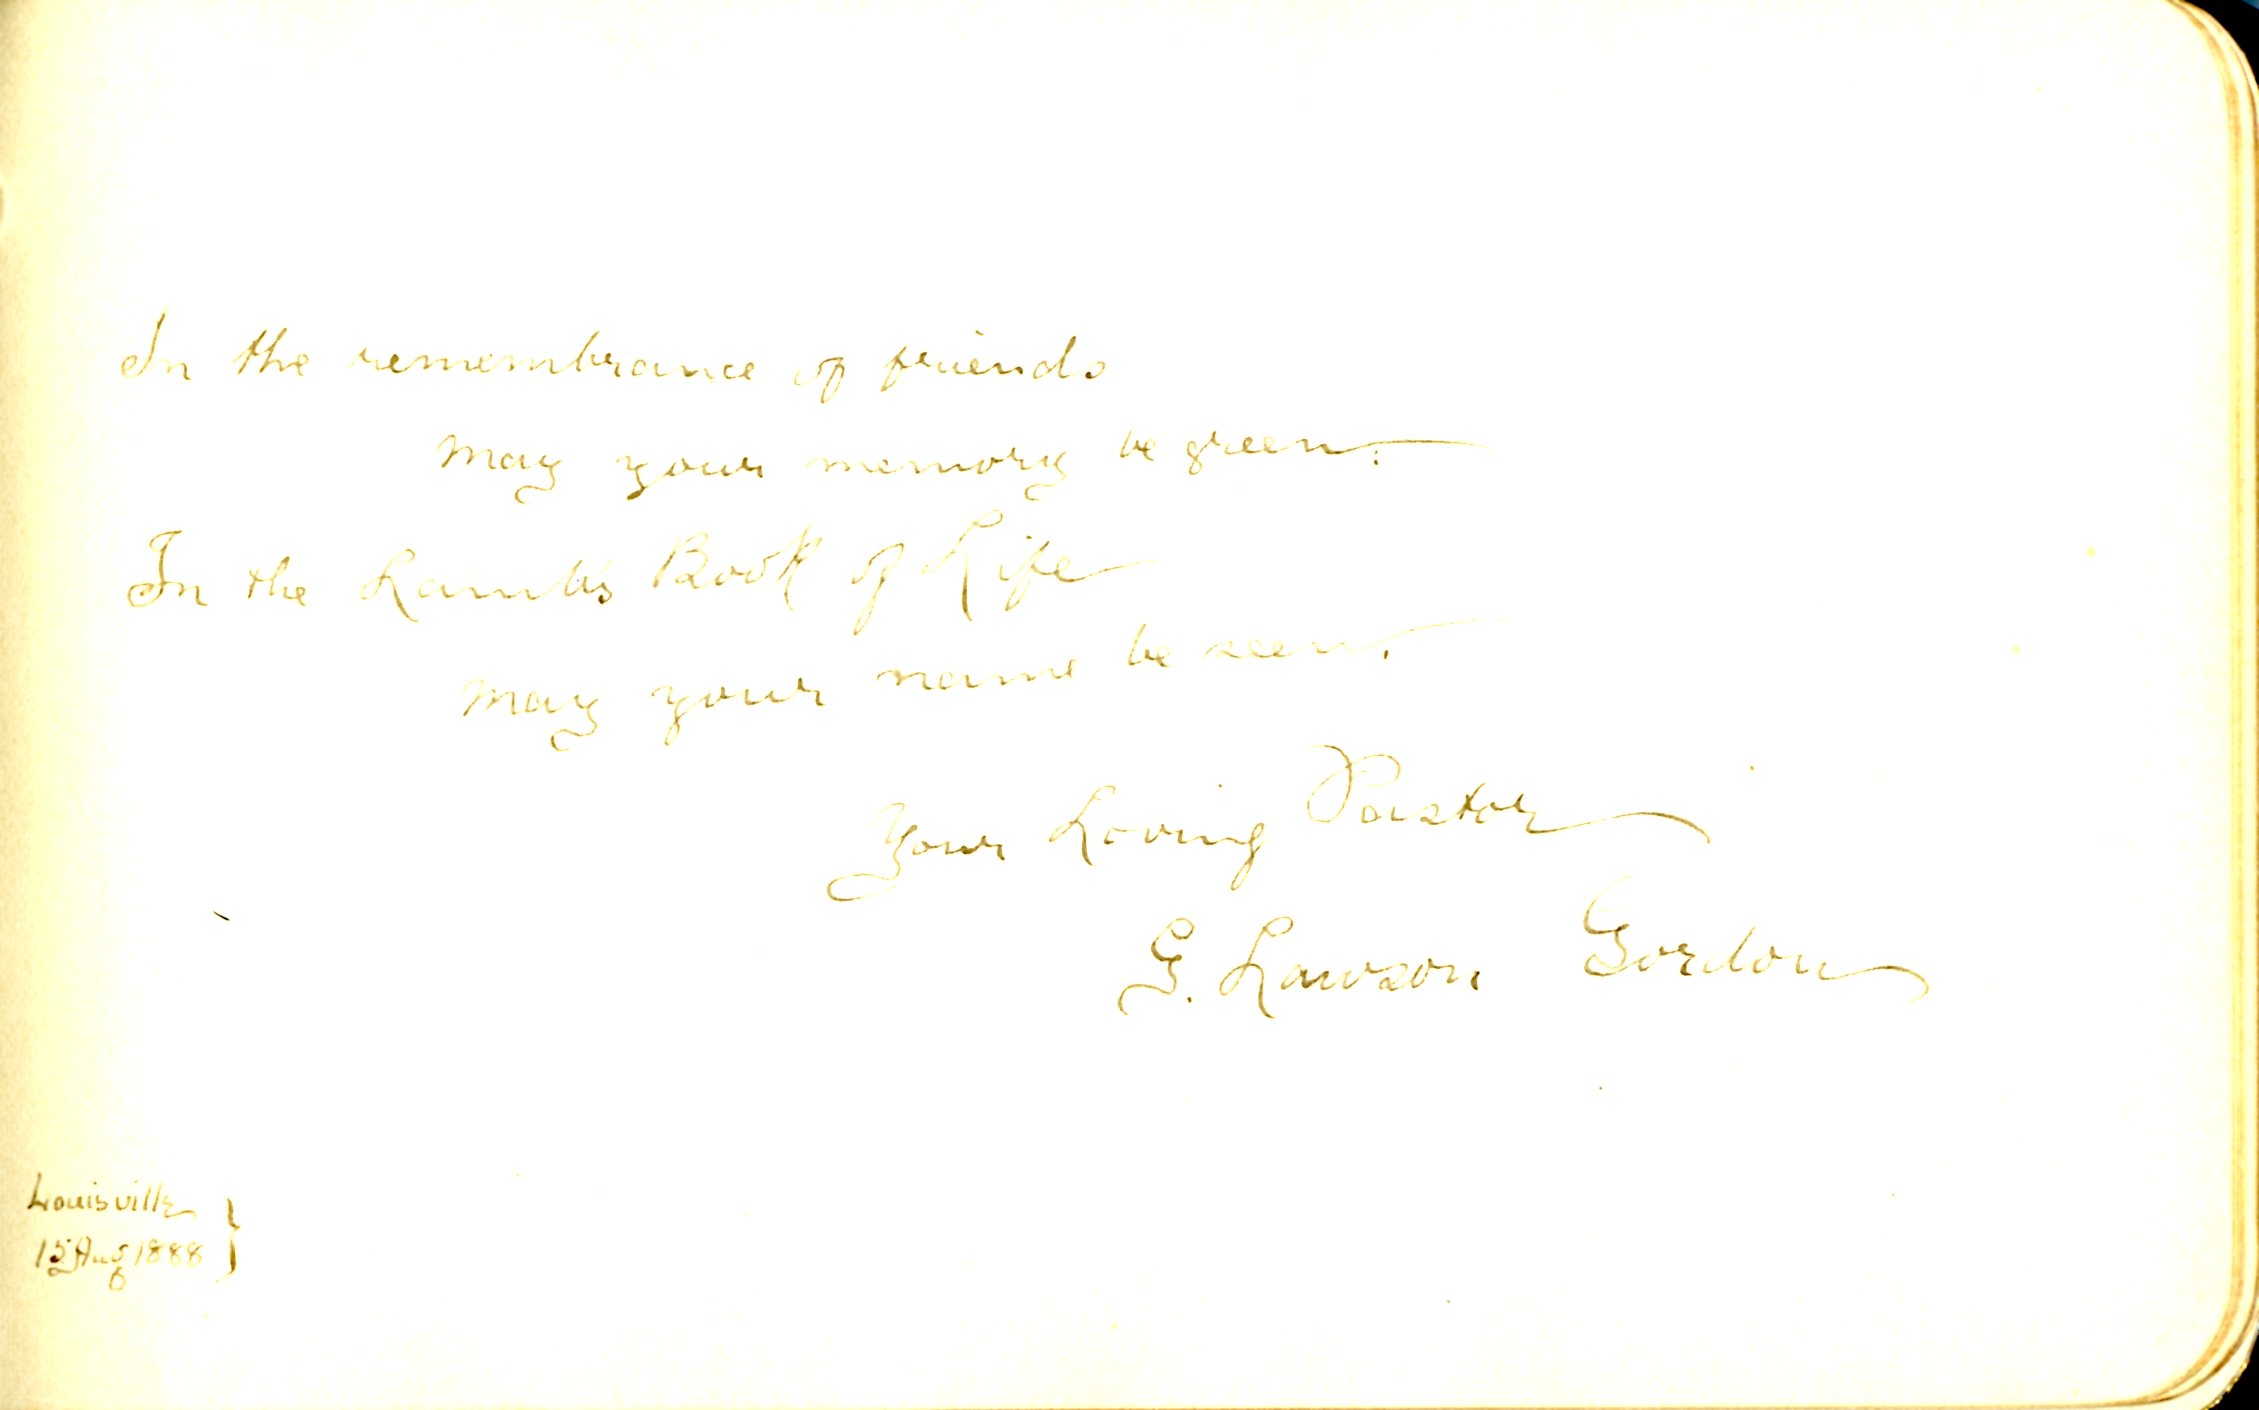 In the remembrance of friends
May your memory be green.
In the Lamb's Book of Life
May your name be seen.
Your Loving Pastor
G. Lawson Gordon
Louisville
15 Aug 1888